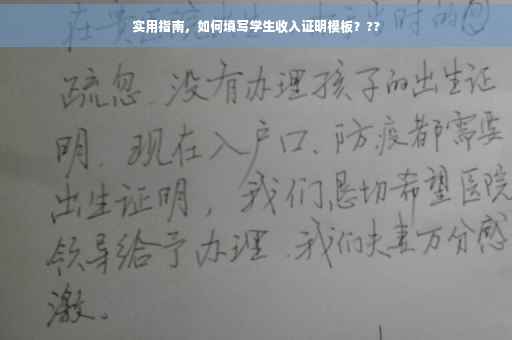 实用指南，如何填写学生收入证明模板？??
在 时的
疏忽、没有办理孩子的出生证
明．现在入户口、防疫都需要
出生证明，我们恳切希望医院
领导给予办理．我们夫妻万分感
激。